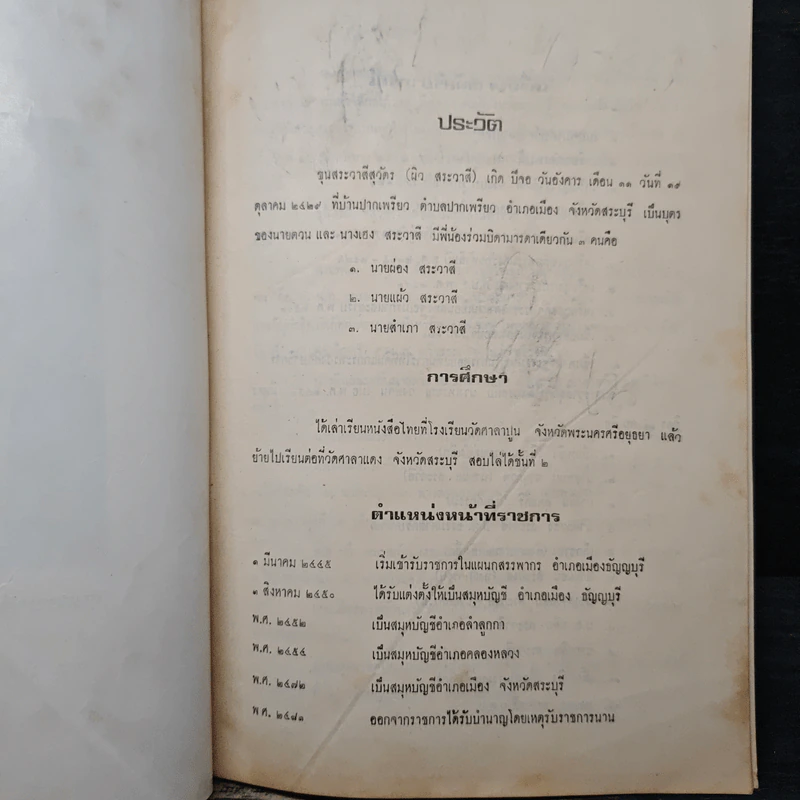 ประวัติ
ขุนสระวาสีสุวัตร (ผิว สระวาสี) เกิด ปีจอ วันอังคาร เดือน ๑๑ วันที่ ๑๙
ตุลาคม ๒๔๒๙ ที่บ้านปากเพรียว ตำบลปากเพรียว อำเภอเมือง จังหวัดสระบุรี เป็นบุตร
ของนายตวน และ นางเฮง สระวาสี มีพี่น้องร่วมบิดามารดาเดียวกัน ๓ คนคือ
๑. นายผ่อง สระวาสี
๒. นายแผ้ว สระวาสี
๓. นายสำเภา สระวาสี
การศึกษา
ได้เล่าเรียนหนังสือไทยที่โรงเรียนวัดศาลาปูน จังหวัดพระนครศรีอยุธยา แล้ว
ย้ายไปเรียนต่อที่วัดศาลาแดง จังหวัดสระบุรี สอบไล่ได้ชั้นที่ ๒
ตำแหน่งหน้าที่ราชการ
๑ มีนาคม ๒๔๔๕ เริ่มเข้ารับราชการในแผนกสรรพากร อำเภอเมืองธัญญบุรี
๑ สิงหาคม ๒๔๕๐ ได้รับแต่งตั้งให้เป็นสมุหบัญชี อำเภอเมือง ธัญญบุรี
พ.ศ. ๒๔๕๒ เป็นสมุหบัญชีอำเภอลำลูกกา
พ.ศ. ๒๔๕๔ เป็นสมุหบัญชีอำเภอคลองหลวง
พ.ศ. ๒๔๗๒ เป็นสมุหบัญชีอำเภอเมือง จังหวัดสระบุรี
พ.ศ. ๒๔๘๑ ออกจากราชการได้รับบำนาญโดยเหตุรับราชการนาน